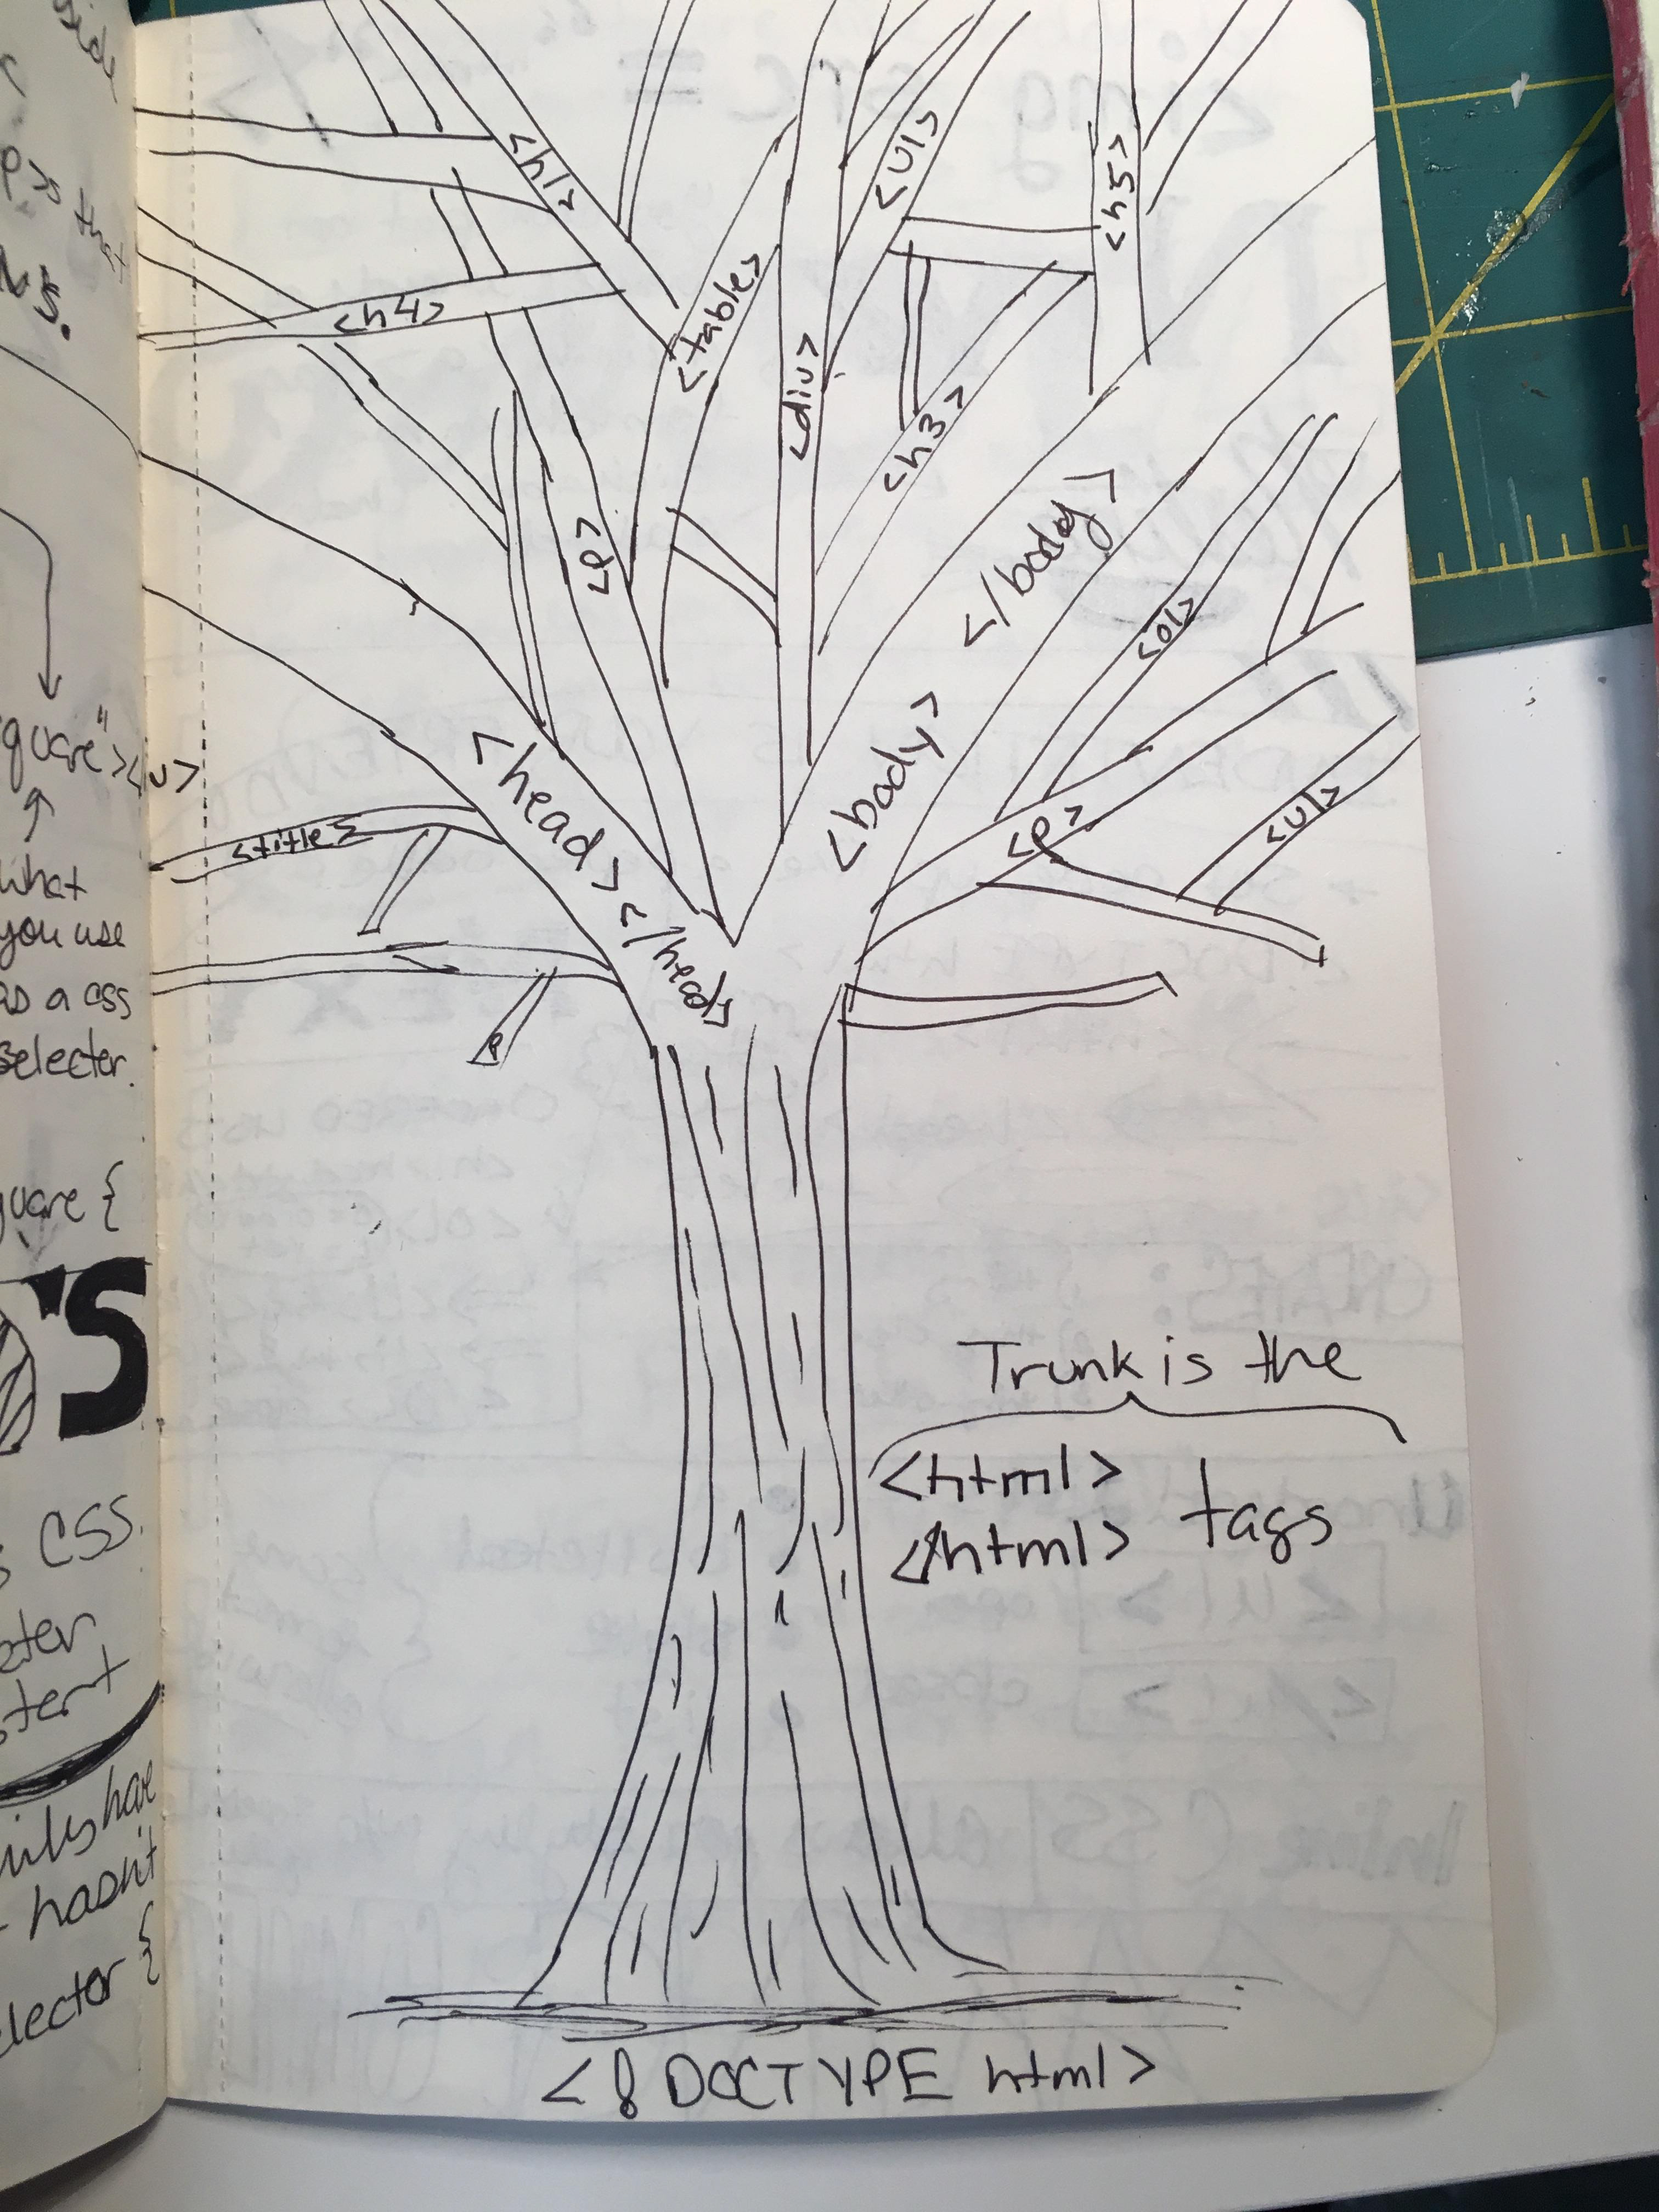 side
p>s that
's.
quare"><iv>
what
you use
as a css
selecter.
quare {
'S
CSS
stert
have
hasn't
elector {
<h1>
<ul>
<h5>
<table>
<h4>
<div>
<h3>
<p>
</body>
<ol>
<body>
<head>
</head>
<title>
<p>
<ul>
p
Trunk is the
<html>
</html> tags
<!DOCTYPE html>